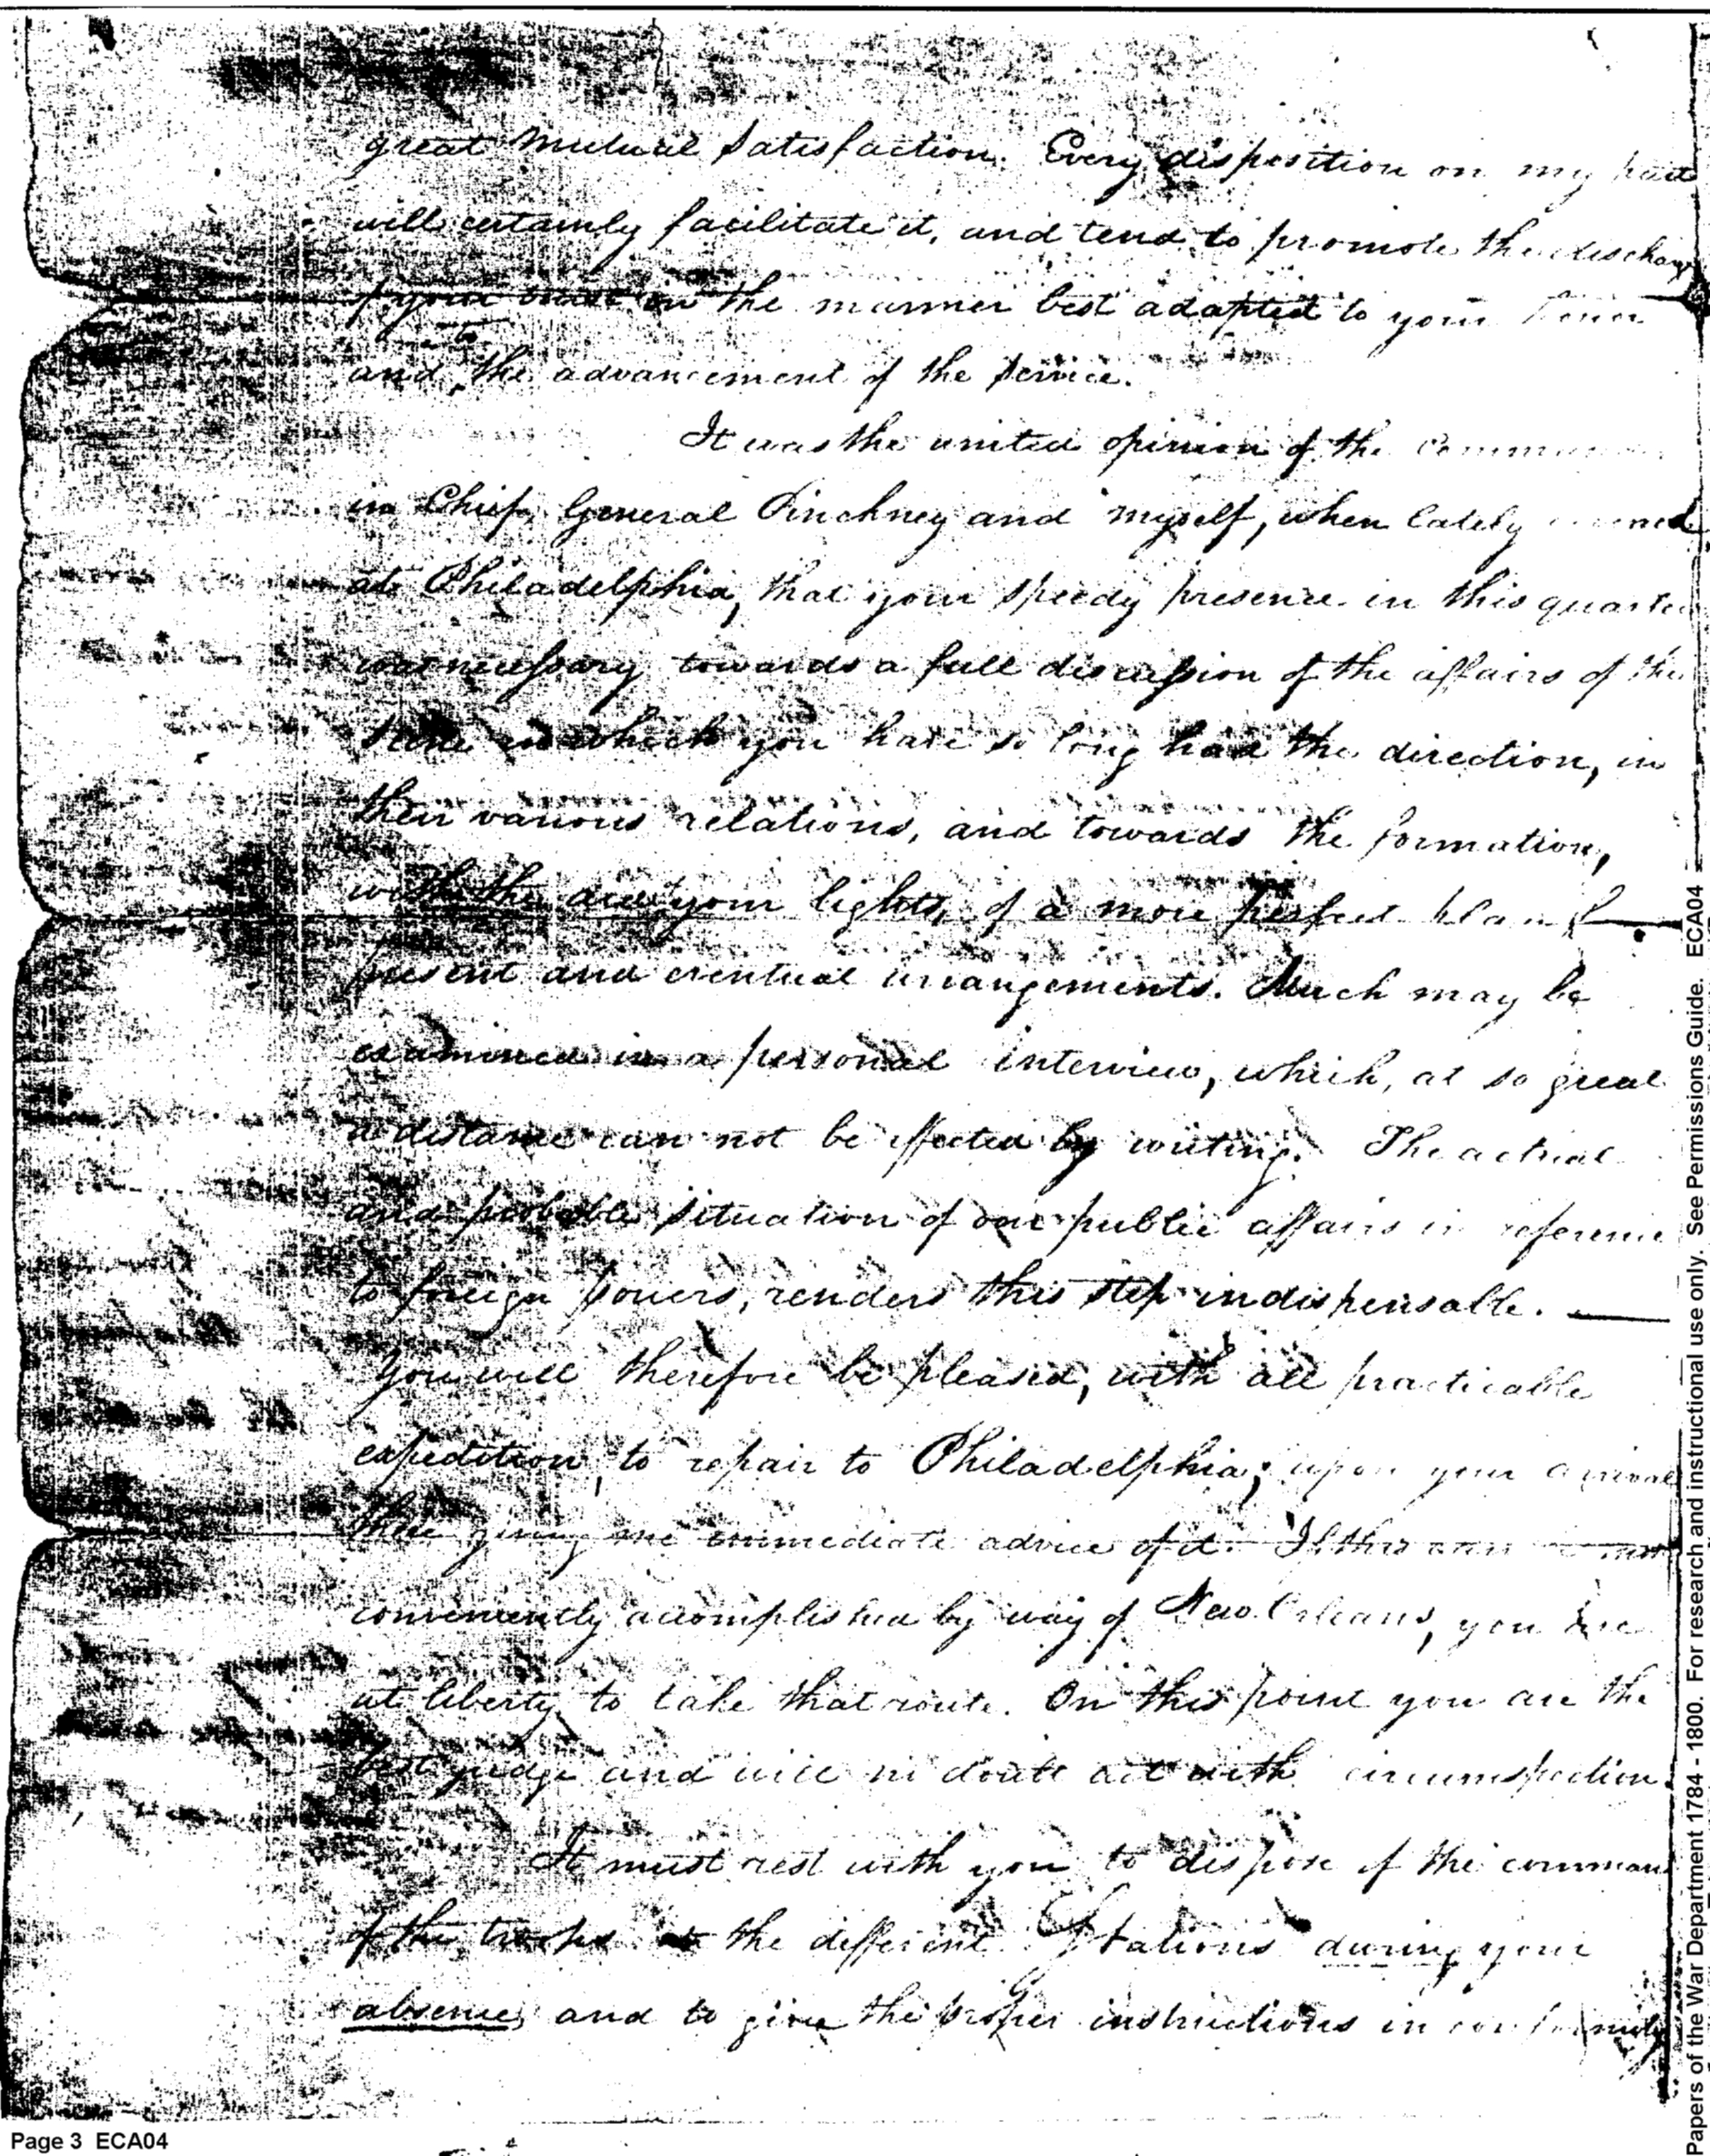 great mutual satisfaction. Every disposition on my part
will certainly facilitate it, and tend to promote the discharge
of your trust in the manner best adapted to your
and to the advancement of the service.
It was the united opinion of the
in Chief, General Pinckney and myself, when lately
at Philadelphia, that your speedy presence in this quarter
was necessary towards a full discussion of the affairs of the
scene in which you have so long had the direction, in
their various relations, and towards the formation,
with the aid your lights, of a more perfect plan
present and eventual arrangements. Much may be
examined in a personal interview, which, at so great
a distance can not be effected by writing. The actual
and probable situation of our public affairs in reference
to foreign powers, renders this step indispensable.
You will therefore be pleased, with all practicable
expedition, to repair to Philadelphia; upon your arrival
there giving me immediate advice of it. If this can
conveniently accomplished by way of New Orleans, you are
at liberty to take that route. On this point you are the
best judge and will no doubt act with circumspection.
It must rest with you to dispose of the command
of the troops at the different Stations during your
absence, and to give the proper instructions in conformity
Page 3 ECA04
Papers of the War Department 1784 - 1800. For research and instructional use only. See Permissions Guide. ECA04